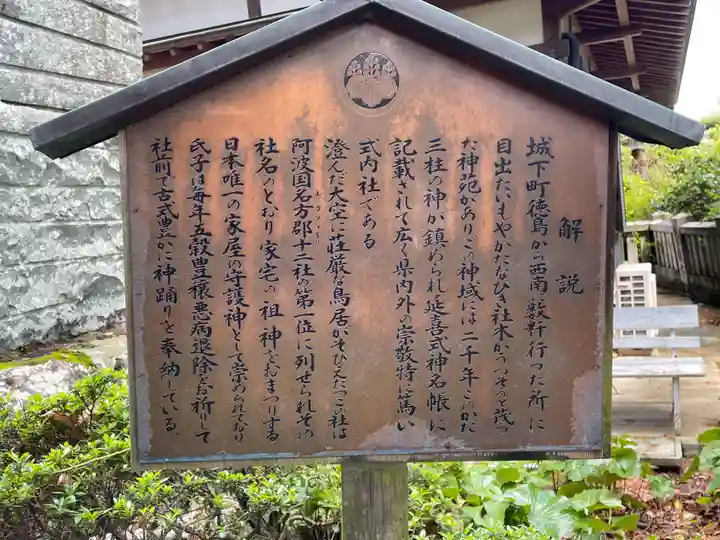 解説
城下町徳島から西南へ数粁行つた所に
目出たいもやがたなびき社木がうつそうと茂つ
た神苑がありこの神域には二千年このかた
三柱の神が鎮められ延喜式神名帳に
記載されて広く県内外の崇敬特に篤い
式内社である
澄んだ大空に荘厳な鳥居がそびえたつこの社は
阿波国名方郡十二社の第一位に列せられその
社名のとおり家宅の祖神をおまつりする
日本唯一の家屋の守護神として崇められており
氏子は毎年五穀豊穣悪病退除を祈して
社前で古式豊かに神踊りを奉納している。